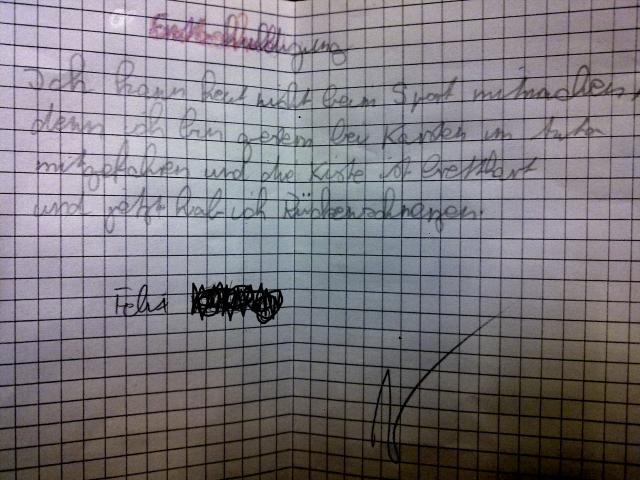 Entschuldigung
Ich kann heut nicht beim Sport mitmachen,
denn ich bin gestern bei Karsten im Auto
mitgefahren und die Kiste ist bretthart
und jetzt hab ich Rückenschmerzen.
Felix